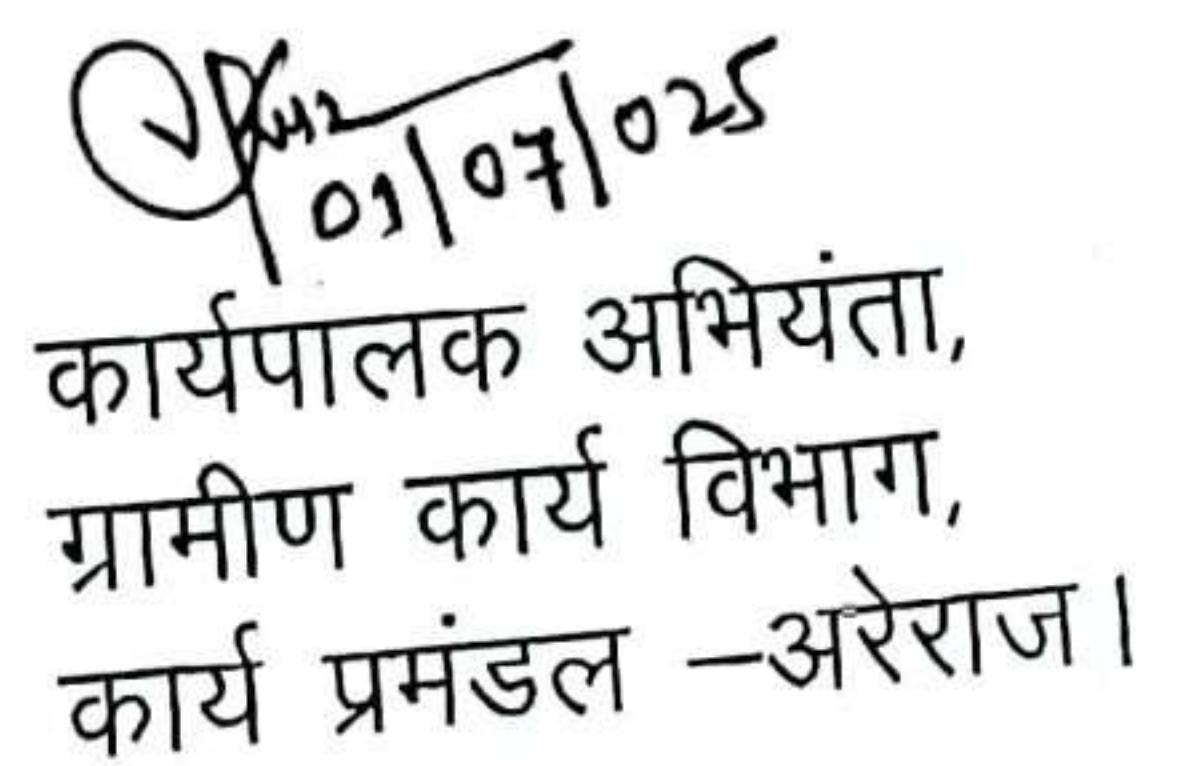 01/07/025
कार्यपालक अभियंता,
ग्रामीण कार्य विभाग,
कार्य प्रमंडल –अरेराज।